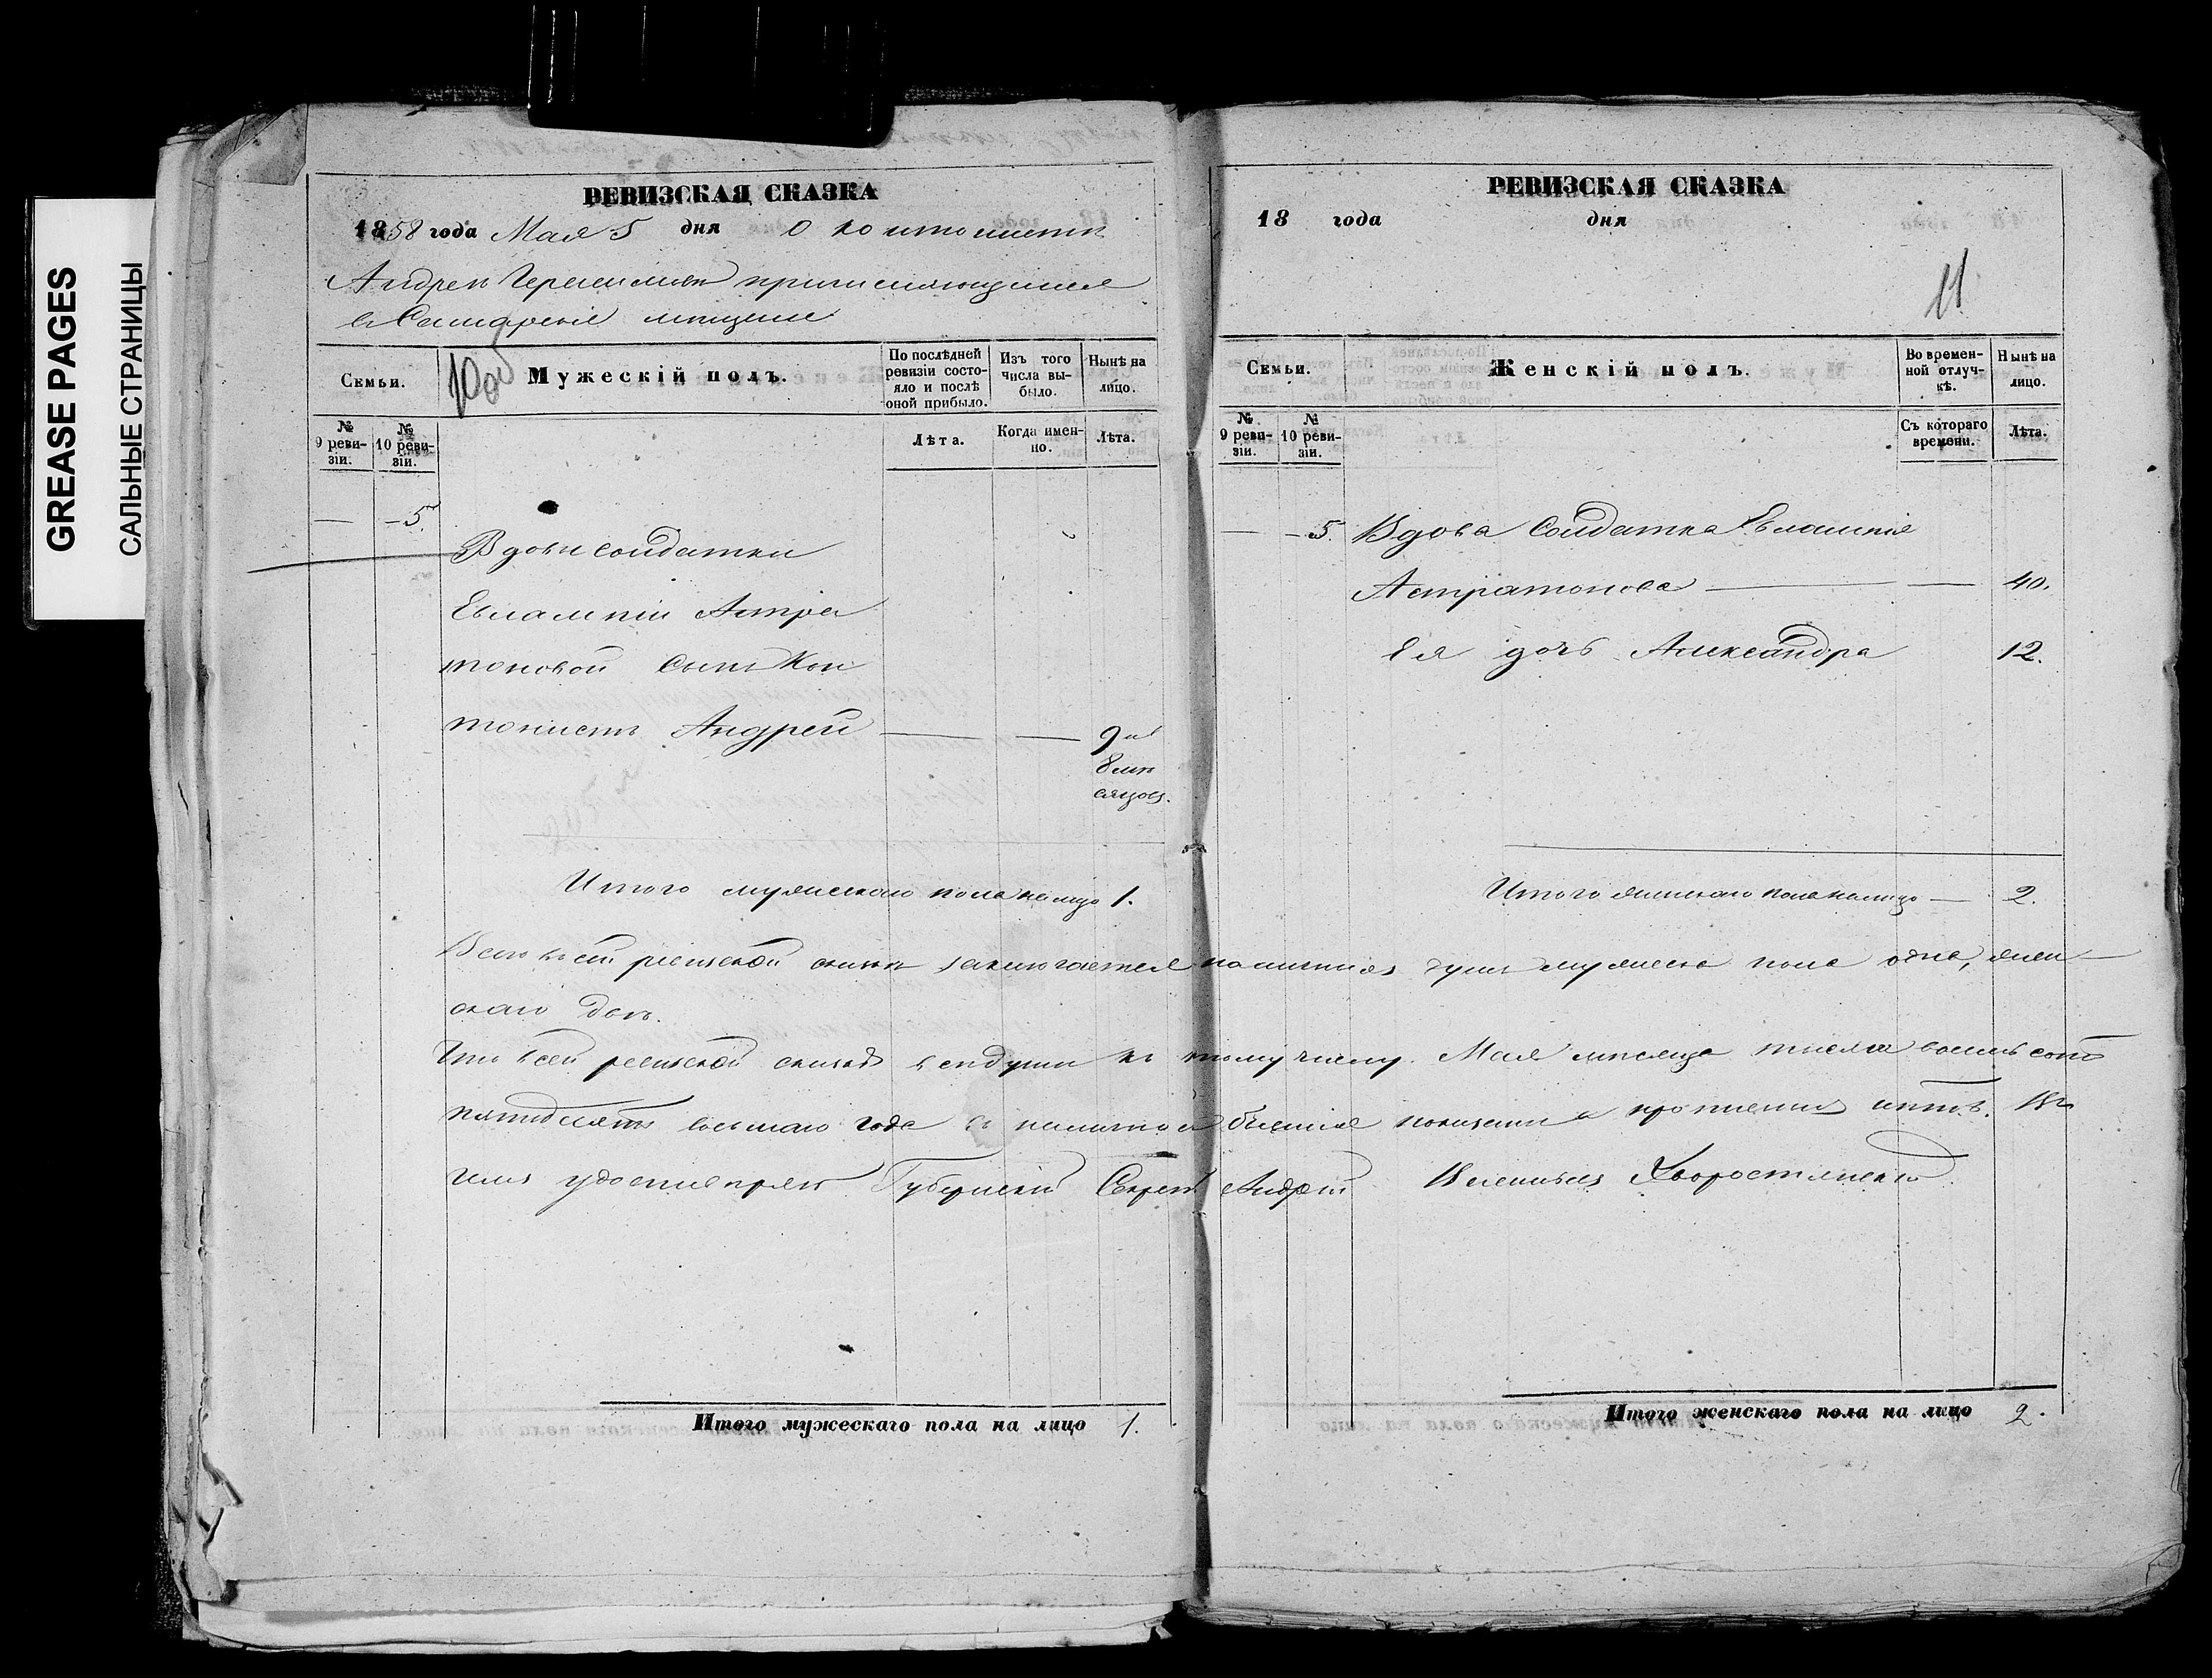 GREASE PAGES
САЛЬНЫЕ СТРАНИЦЫ
РЕВИЗСКАЯ СКАЗКА
1858 года Мая 5 дня О контонистѣ
Андреѣ Герасимовѣ причисляющимся
въ Самарскіе мѣщане
Семьи.
10об
Мужескій полъ.
По послѣдней ревизіи состояло и послѣ оной прибыло.
Изъ того числа выбыло.
Нынѣ на лицо.
№ 9 ревизіи.
№ 10 ревизіи.
Лѣта.
Когда именно.
Лѣта.
— -5.
Вдовы солдатки
Евлампіи Астра
тоновой сынъ Кон
тонистъ Андрей — — 9 и
8 мѣ
сяцов.
Итого мужескаго пола налицо 1.
РЕВИЗСКАЯ СКАЗКА
18 года дня
11
Семьи.
Женскій полъ.
Во временной отлучкѣ.
Нынѣ на лицо.
№ 9 ревизіи.
№ 10 ревизіи.
Съ котораго времени.
Лѣта.
— -5. Вдова Солдатка Евлампія
Астратонова — — 40.
Ея дочь Александра 12.
Итого женскаго пола налицо — 2.
Всего въ сей ревизской сказкѣ заключается наличныхъ душъ мужеска пола одна, жен
скаго двѣ.
Что въ сей ревизской сказкѣ всѣ души къ тому числу Мая мѣсяца тысяча восемьсотъ
пятьдесятъ восьмаго года въ наличности бывшія показаны и пропченныхъ нѣтъ. Въ
чемъ удостовѣряю Губернскій Секрет Андрей Васильевъ Хворостянскій
Итого мужескаго пола на лицо 1.
Итого женскаго пола на лицо 2.